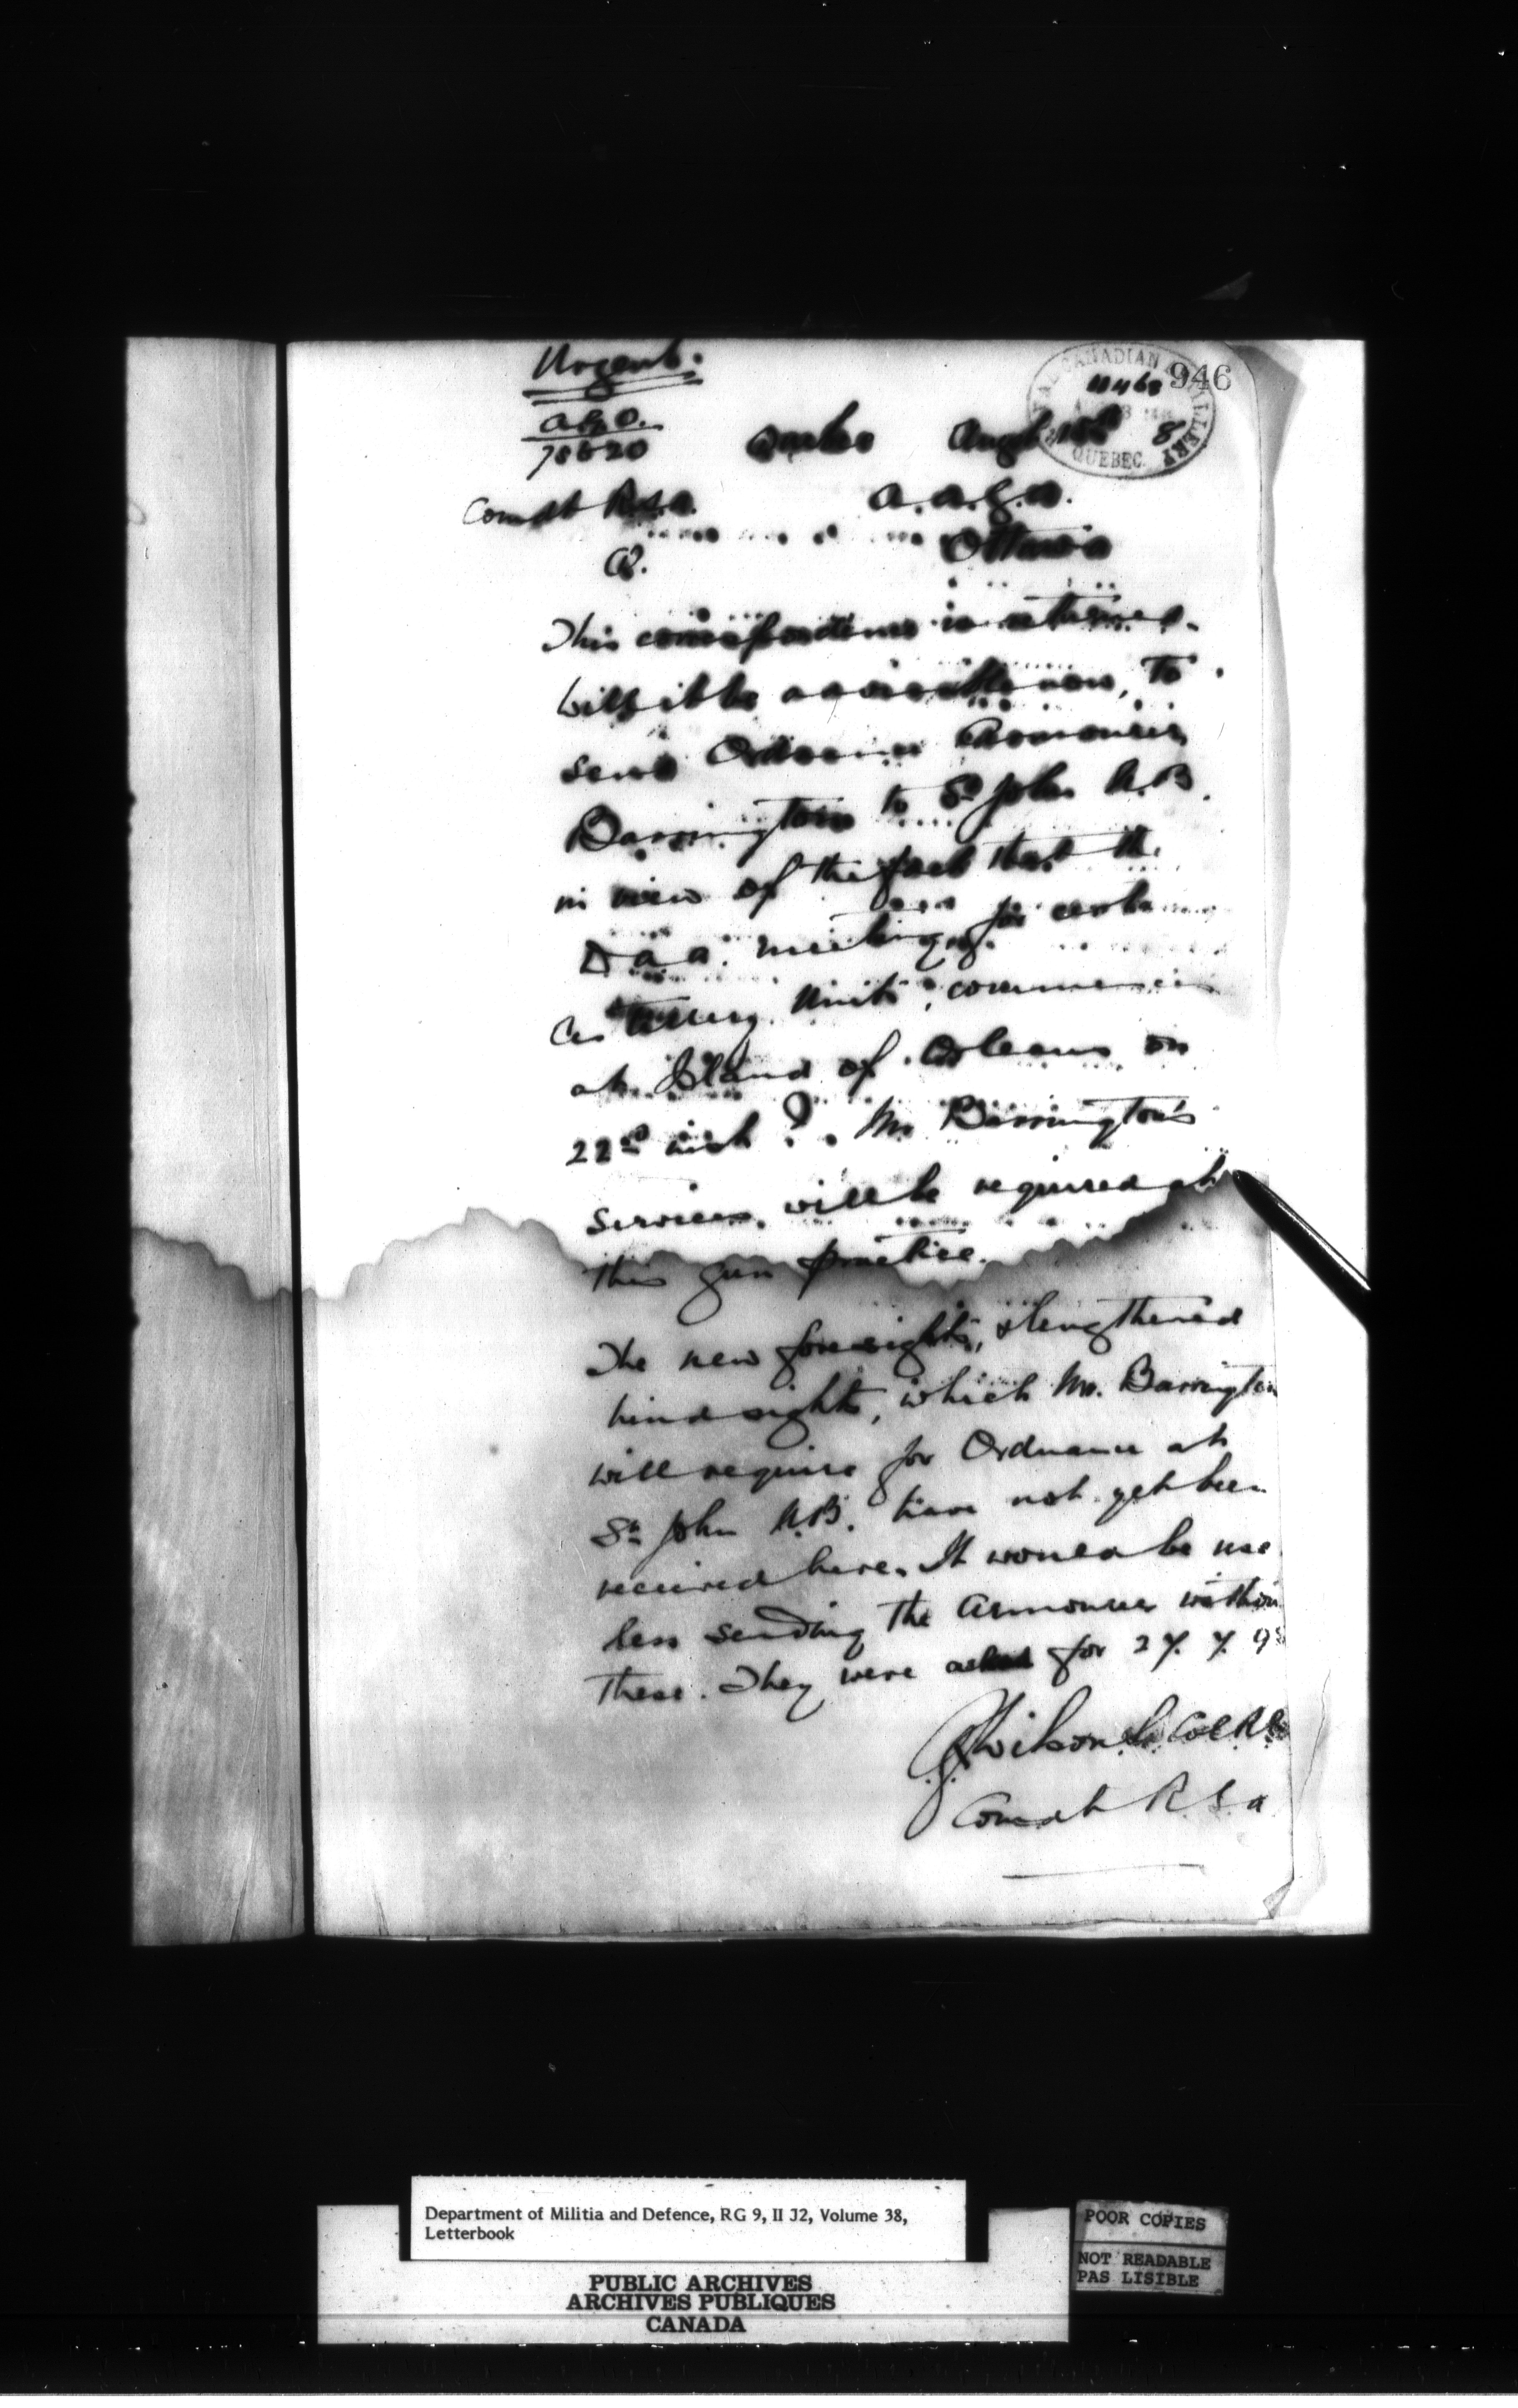 Urgent.
946
ROYAL CANADIAN ARTILLERY
QUEBEC
A.G.O.
78520
Quebec August 8
Comdt R.S.A. A.A.G.A.
Q. Ottawa
This correspondence is returned.
Will it be advisable now, to
send Ordnance Armourer
Barrington to St John N.B.
in view of the fact that the
D.A.A. meeting for certain
Artillery Units, commences
at Island of Orleans on
22nd inst? Mr Barrington's
services, will be required at
this gun practice.
The new foresights, & lengthened
hind sights, which Mr. Barrington
will require for Ordnance at
St John N.B. have not yet been
received here. It would be use
less sending the Armourer withou
these. They were asked for 27.7.98
Wilson Lt Col R.C.
Comdt R.S.A
Department of Militia and Defence, RG 9, II J2, Volume 38,
Letterbook
PUBLIC ARCHIVES
ARCHIVES PUBLIQUES
CANADA
POOR COPIES
NOT READABLE
PAS LISIBLE